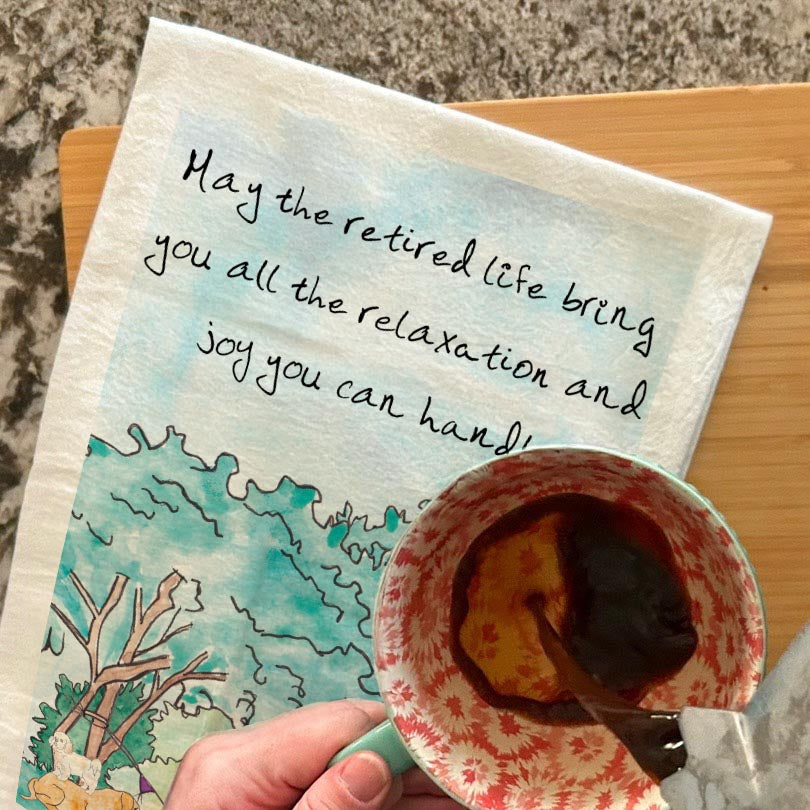 May the retired life bring
you all the relaxation and
joy you can hand